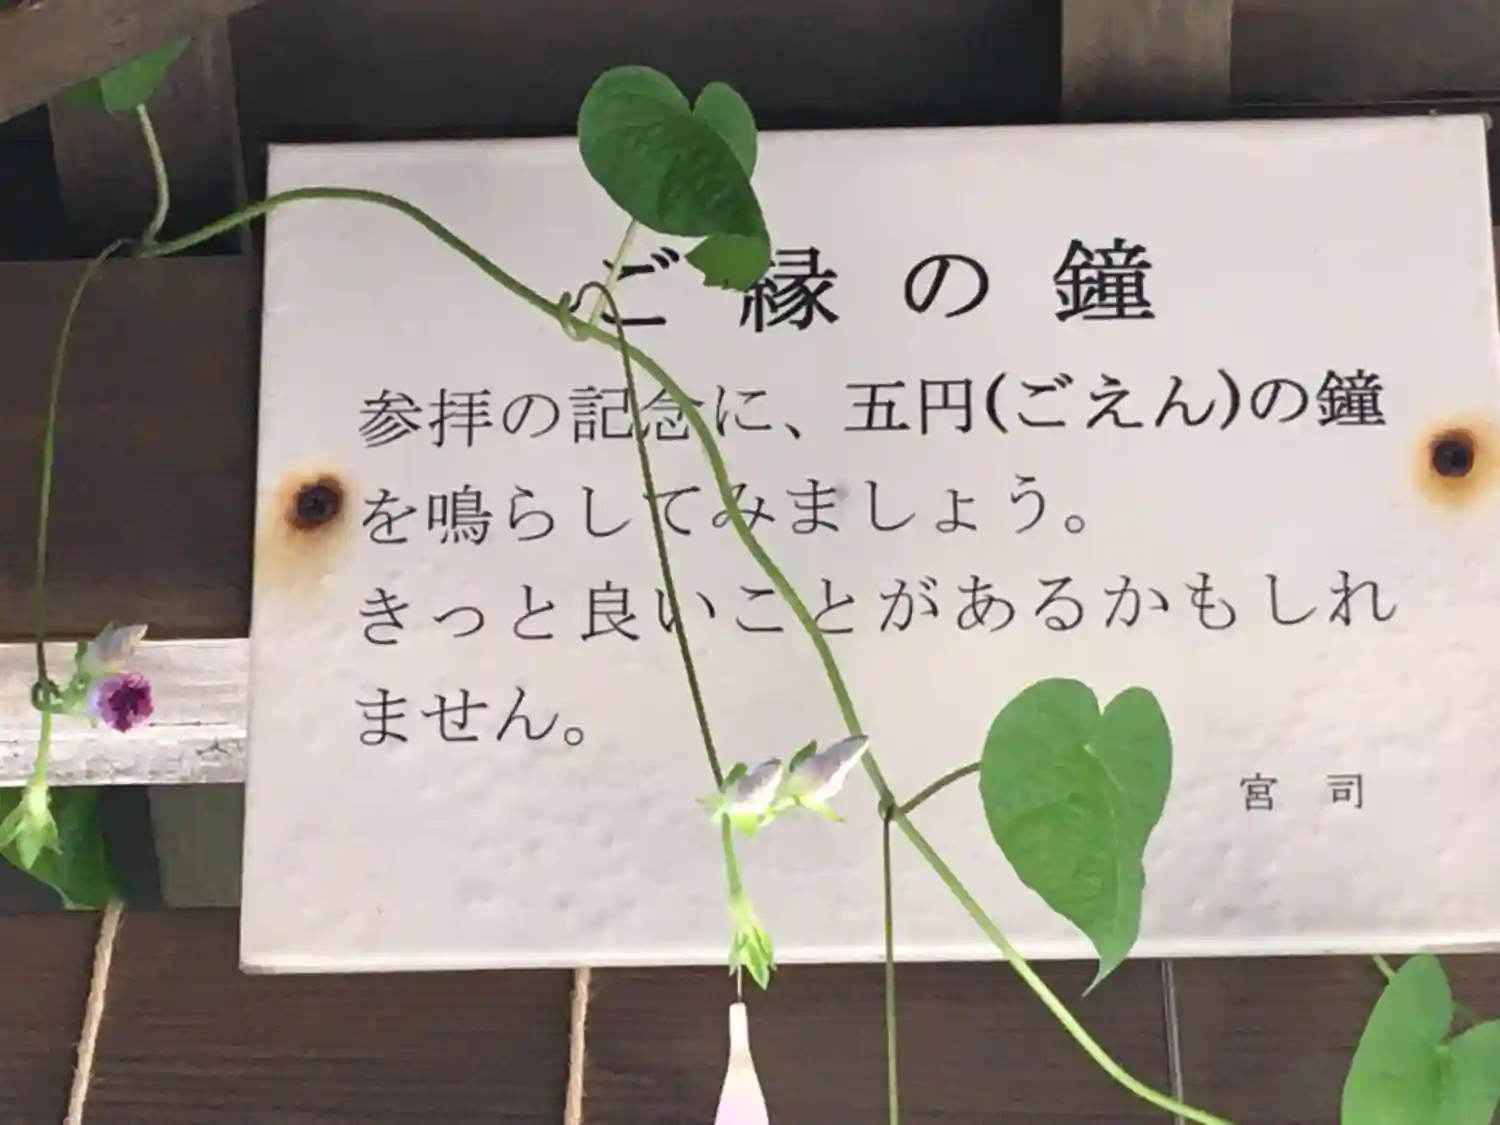 ご縁の鐘
参拝の記念に、五円(ごえん)の鐘
を鳴らしてみましょう。
きっと良いことがあるかもしれ
ません。
宮司